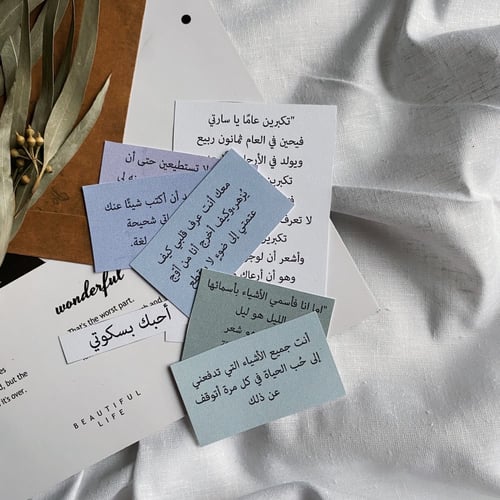 "تكبرين عامًا يا سارتي
فيحين في العام ثمانون ربيع
ويولد في
تكبرين
لا تعرف
وأشعر أن
وهو أن أرعاك
لا تستطيعين حتى أن
أن أكتب شيئًا عنك
شحيحة
لغة.
معك أنت عرف قلبي كيف
يُزهر، وكيف أخرج أنا من أوج
عتمتي إلى ضوء لا
أنا فأسمي الأشياء بأسمائها
الليل هو ليل
شعر
أنت جميع الأشياء التي تدفعني
إلى حُب الحياة في كل مرة أتوقف
عن ذلك
wonderful
That's the worst part.
and
أحبك بسكوتي
but the
it's over.
BEAUTIFUL
LIFE